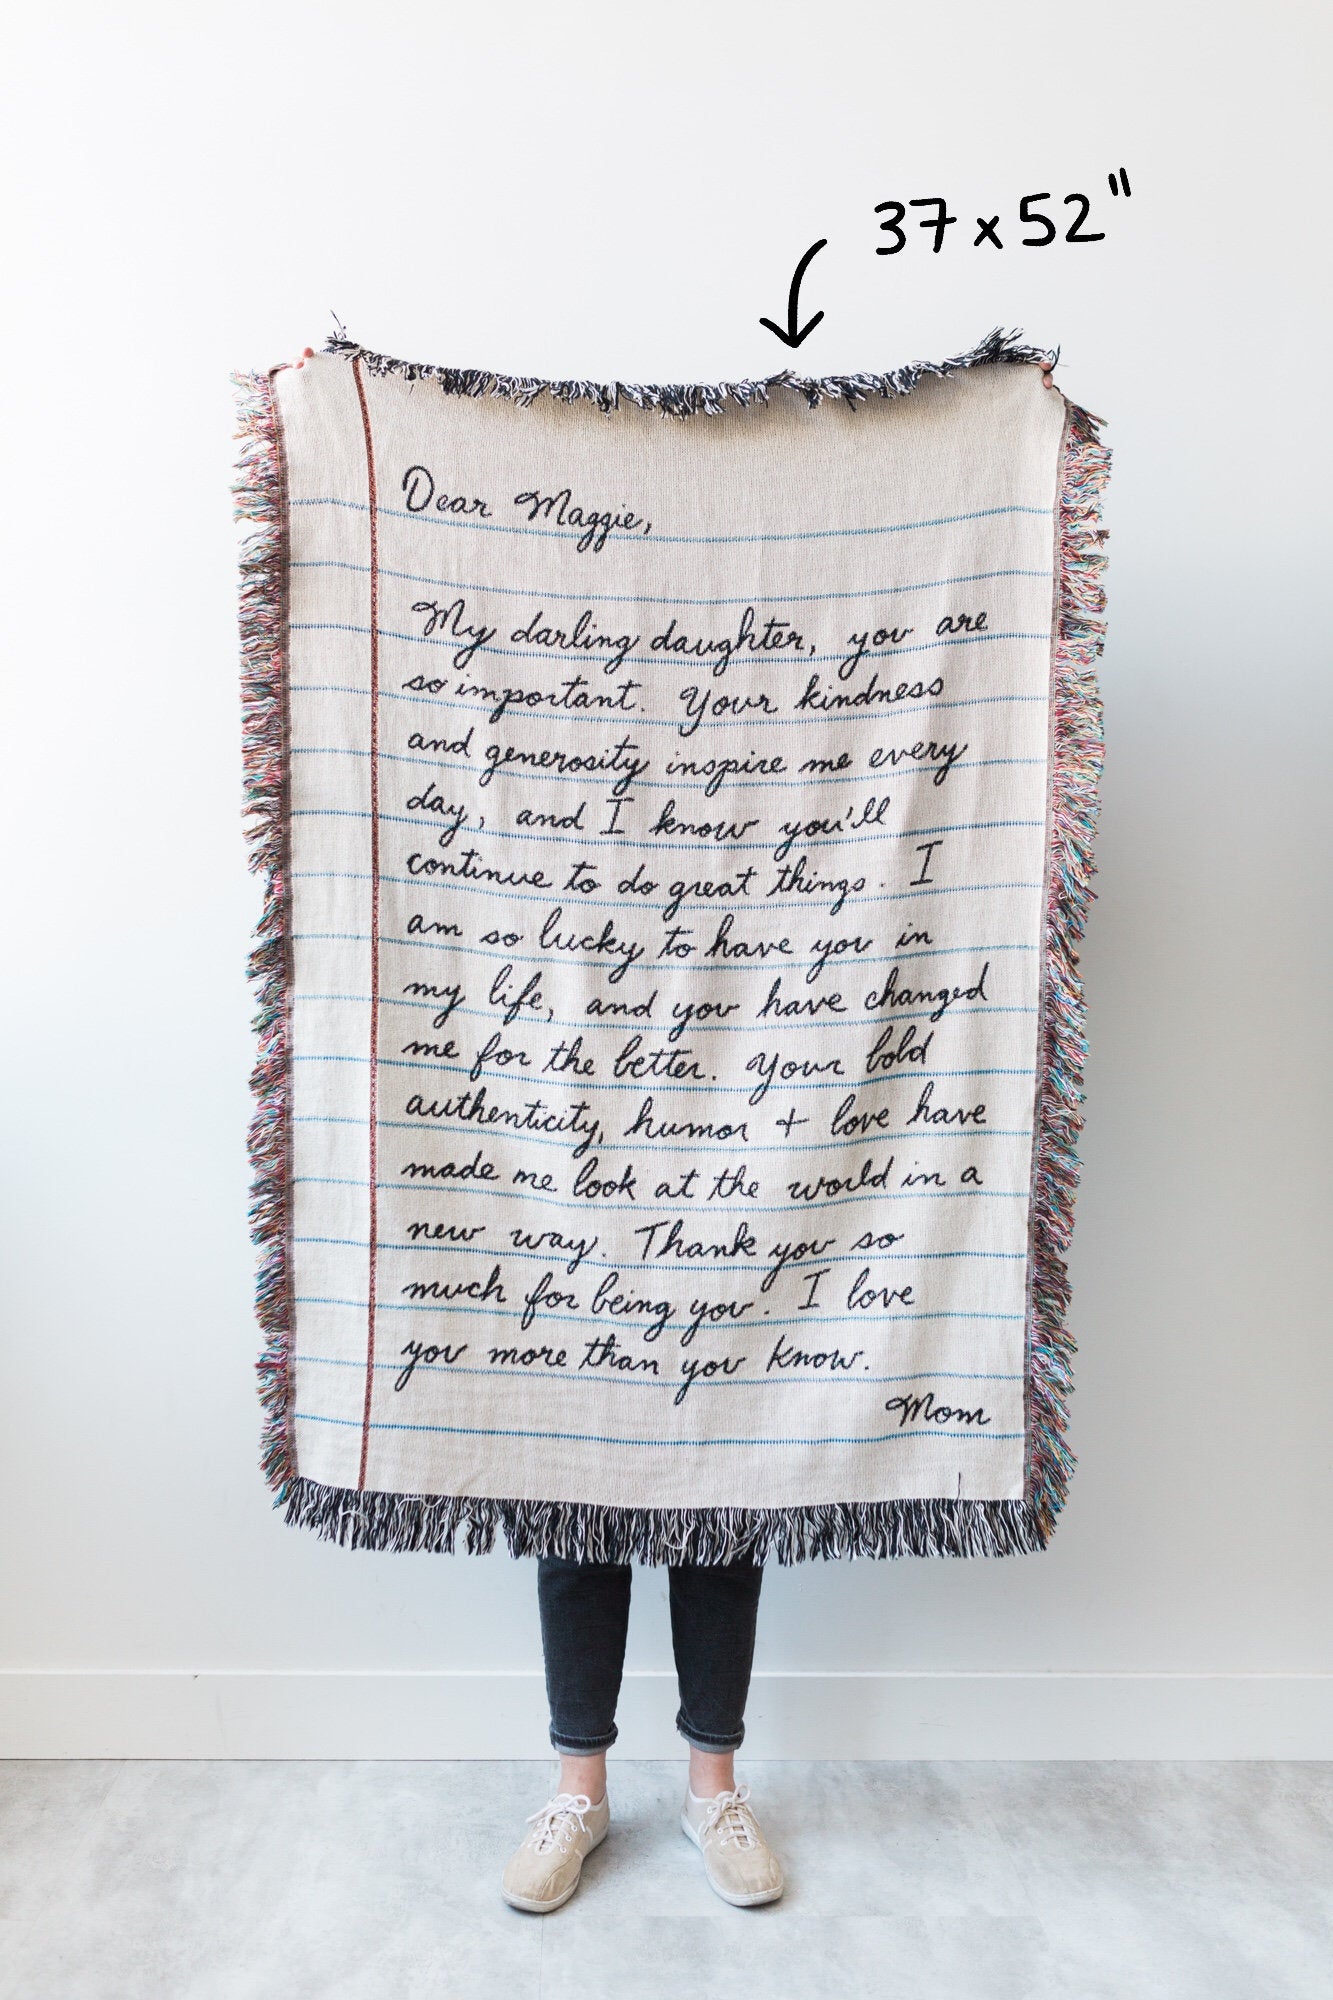 37 x 52"
Dear Maggie,
My darling daughter, you are
so important. Your kindness
and generosity inspire me every
day, and I know you'll
continue to do great things. I
am so lucky to have you in
my life, and you have changed
me for the better. Your bold
authenticity, humor + love have
made me look at the world in a
new way. Thank you so
much for being you. I love
you more than you know.
Mom